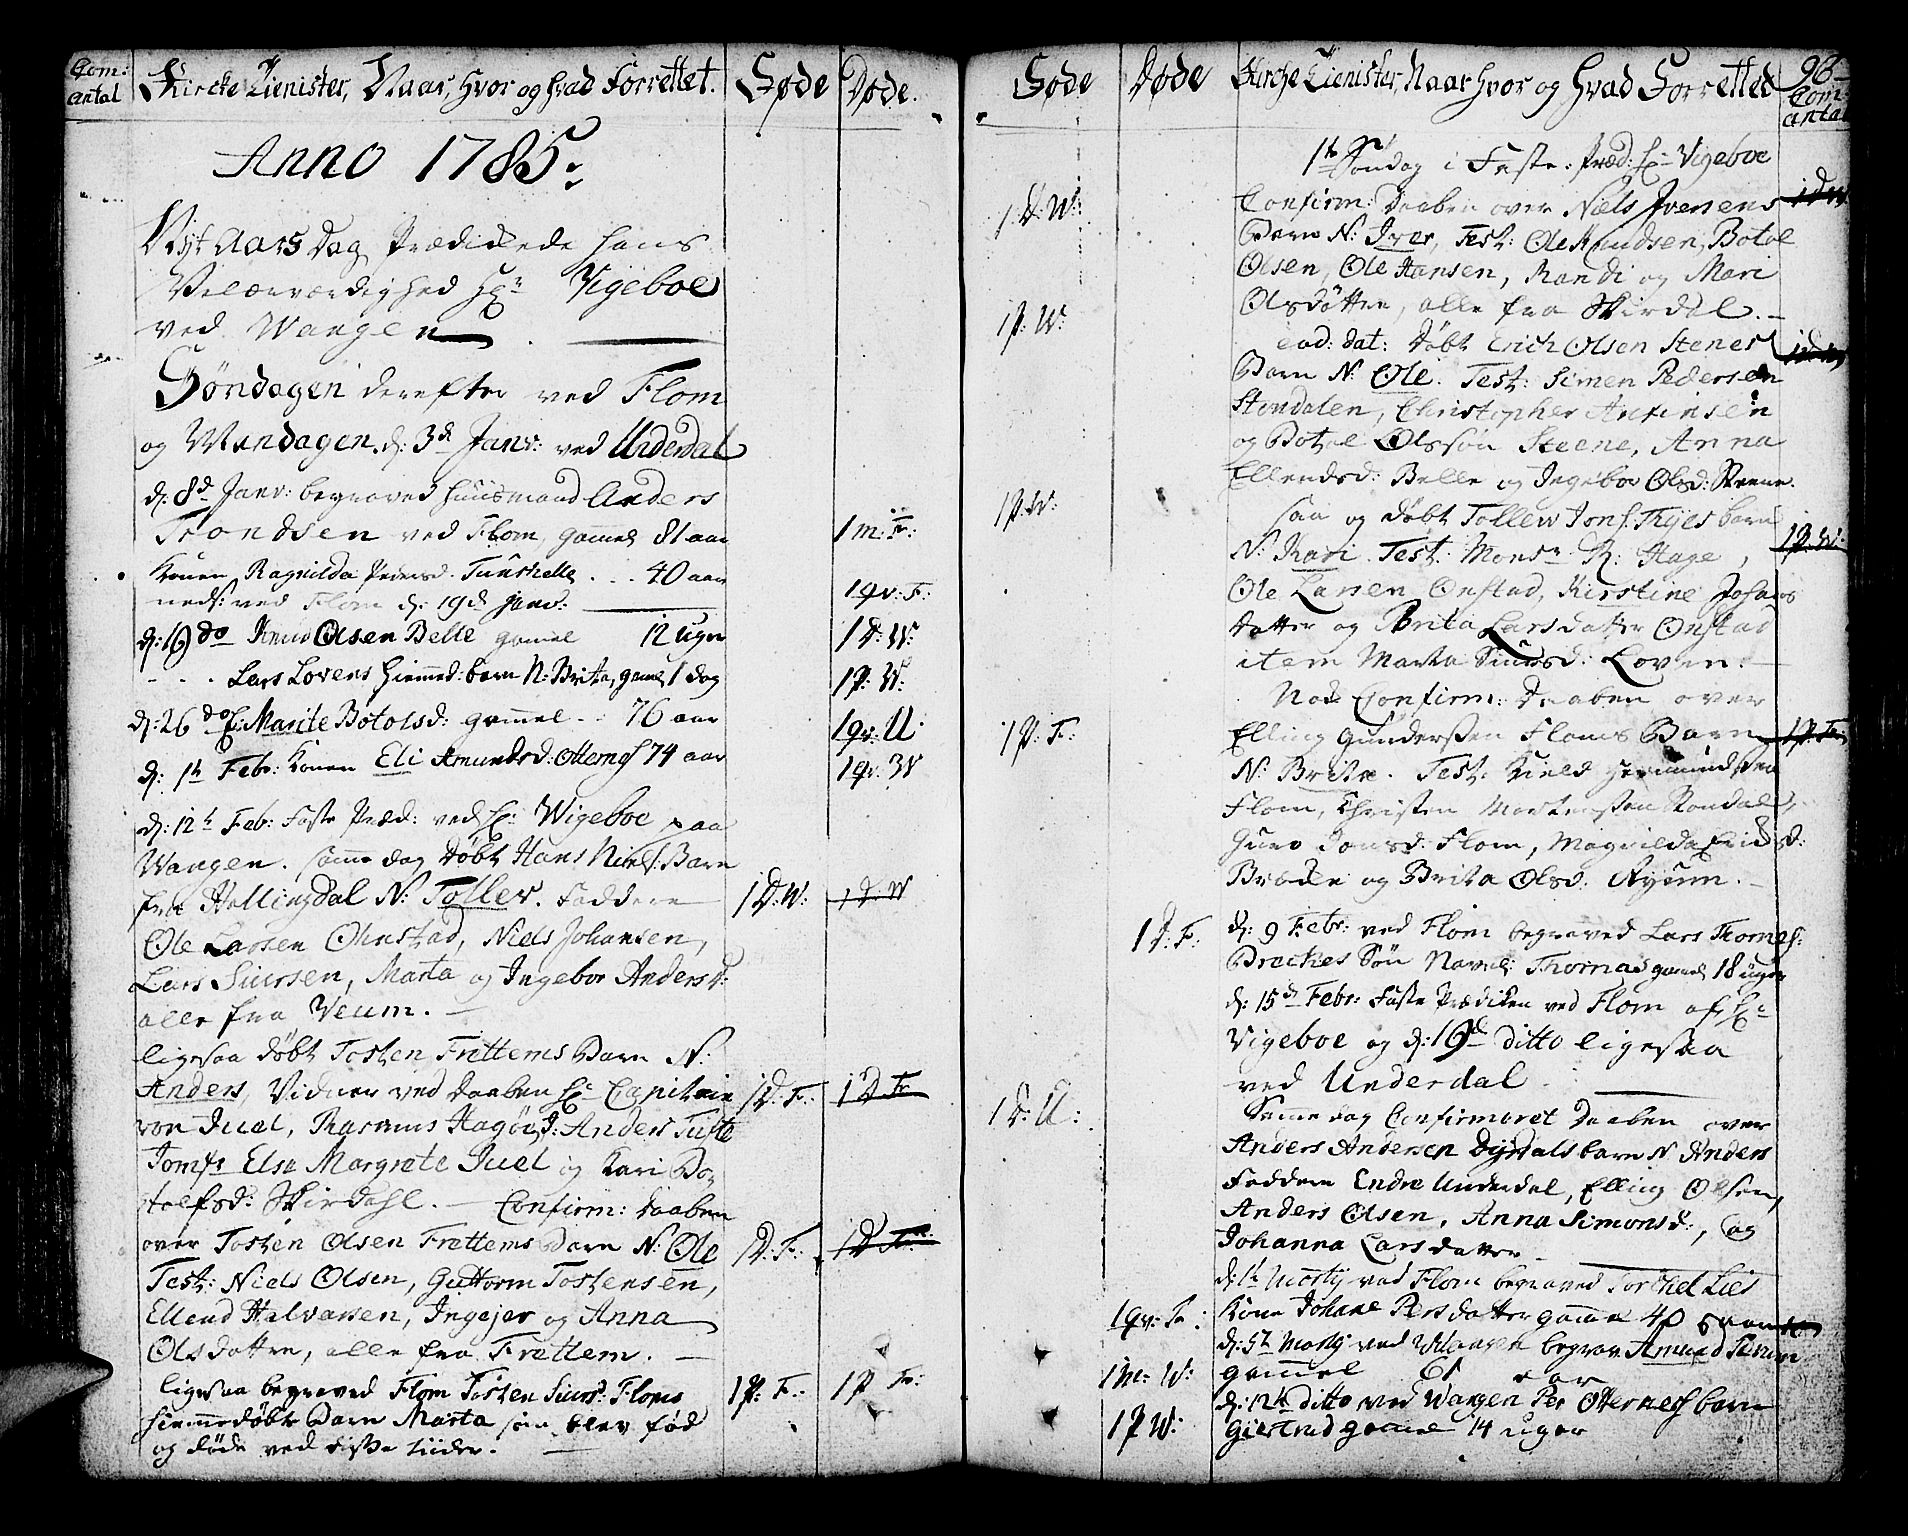 Com: antal
Kircke Tienister, Naar, hvor og hvad Forrettet.
Føde
Døde.
Anno 1785:
Nyt Aars Dag Prædickede hans
Velærværdighed Hr: Vigeboe
ved Wangen
Søndagen derefter ved Flom
og Mandagen d: 3d Janv: ved Underdal
d: 8d Janv: begraved huusmand Anders
Trondsen ved Flom, gammel 81 aar
1 m: F:
Konen Ragnilda Pedersd. Tunshelle . . . 40 aar
neds: ved Flom d: 19d Janv:
1 qv: F:
d: 19 do Knud Olsen Belle gamel 12 uger
1 D: W:
- - - Lars Lovens Hiemmed: barn N: Britta, gamel 1 dag
1 P: W:
d: 26 do E: Marite Botolsd: gammel . . 76 aar
1 qv: U:
d: 1t Febr: Konen Eli Amundsd: Otternes 74 aar
1 qv: W
d: 12t Feb: Faste Præd: ved Hr: Wigeboe paa
Wangen. Samme dag Døbt Hans Niels: Barn
fra Hallingdal N: Tollev. Faddere
1 D: W:
1 D: W
Ole Larsen Ohnstad, Niels Johansen,
Lars Siursen, Marta og Ingebor Anders D:
alle fra Veum.
ligesaa døbt Tosten Frettems Barn N:
Anders, Vidner ved Daaben Hr Capitain
1 D: F:
1 D F:
von Juel, Rasmus Hagøy, J: Anders Tufte
Jomfr Elsa Margrete Juel og Kari Bo-
tolfsd: Skirdahl. — Confirm: Daaben
over Tosten Olsen Frettems Barn N: Ole
1 D: F:
1 D F:
Test: Niels Olsen, Guttorm Tostensen,
Ellend Halvarsen, Ingejer og Anna
Olsdatter, alle fra Frettem.
ligesaa begraved Flom Tosten Siurs: Floms
1 P: F:
1 P F:
hiemmedøbte Barn Marta som blev fød
og døde ved disse tiider.
Føde
Døde
Kirche Tienister, Naar hvor og hvad Forretted
96
Com: antal
1te Søndag i Faste: Præd: Hr: Vigeboe
1 D: W:
Confirm: Daaben over Niels Iversens
1 D W
Barn N: Iver, Test: Ole Knudsen, Botol
Olsen, Ole Hansen, Randi og Mari
Olsdøttre, alle fra Skirdal.
1 P: W:
eod: dat: Døbt Erich Olsen Stenes
Barn N: Ole. Test: Simen Pedersen
Stondalen, Christopher Anfinsen
og Botol Olssøn Steene, Anna
Ellendsd: Belle og Ingebor Olsd: Steene.
1 P: W:
saa og døbt Tollew Jons: Thyes barn
1 P: W:
N: Kari. Test: Monsr R: Hage,
Ole Larsen Onstad, Kirstine Johans
Datter og Brita Larsdatter Onstad
item Marta Siursd: Loven.
Nok Confirm: Daaben over
1 P: F:
Elling Gundersen Floms Barn
1 P: F:
N: Brita. Test: Kield Giermundsen
Flom, Christen Mortensen Rondal,
Guro Jonsd: Flom, Magnilda Erichsd:
Bræke og Brita Olsd: Ryum.
1 D: F:
d: 9 Febr: ved Flom begraved Lars Thomes:
Breckes Søn Navnl: Thomas gamel 18 uger
d: 15d Febr: Faste Prædiken ved Flom af Hr
Vigeboe og d: 19d ditto ligesaa
ved Underdal
1 D: U:
Samme dag Confirmeret Daaben over
Anders Andersen Dyrdals barn N: Anders
Faddere Endre Underdal, Elling Olsen,
Anders Olsen, Anna Simonsd:, og
Johanna Larsdatter
d: 1t Martij ved Flom begraved Torchel Lies
1 qv: F:
Kone Johane Persdatter gamel 40 aar
d: 5t Martij ved Wangen begrav: Amund Ternum
1 m: W:
gammel 61 aar
d: 12t ditto ved Wangen Per Otternes barn
1 P W:
Giertrud gamel 14 uger